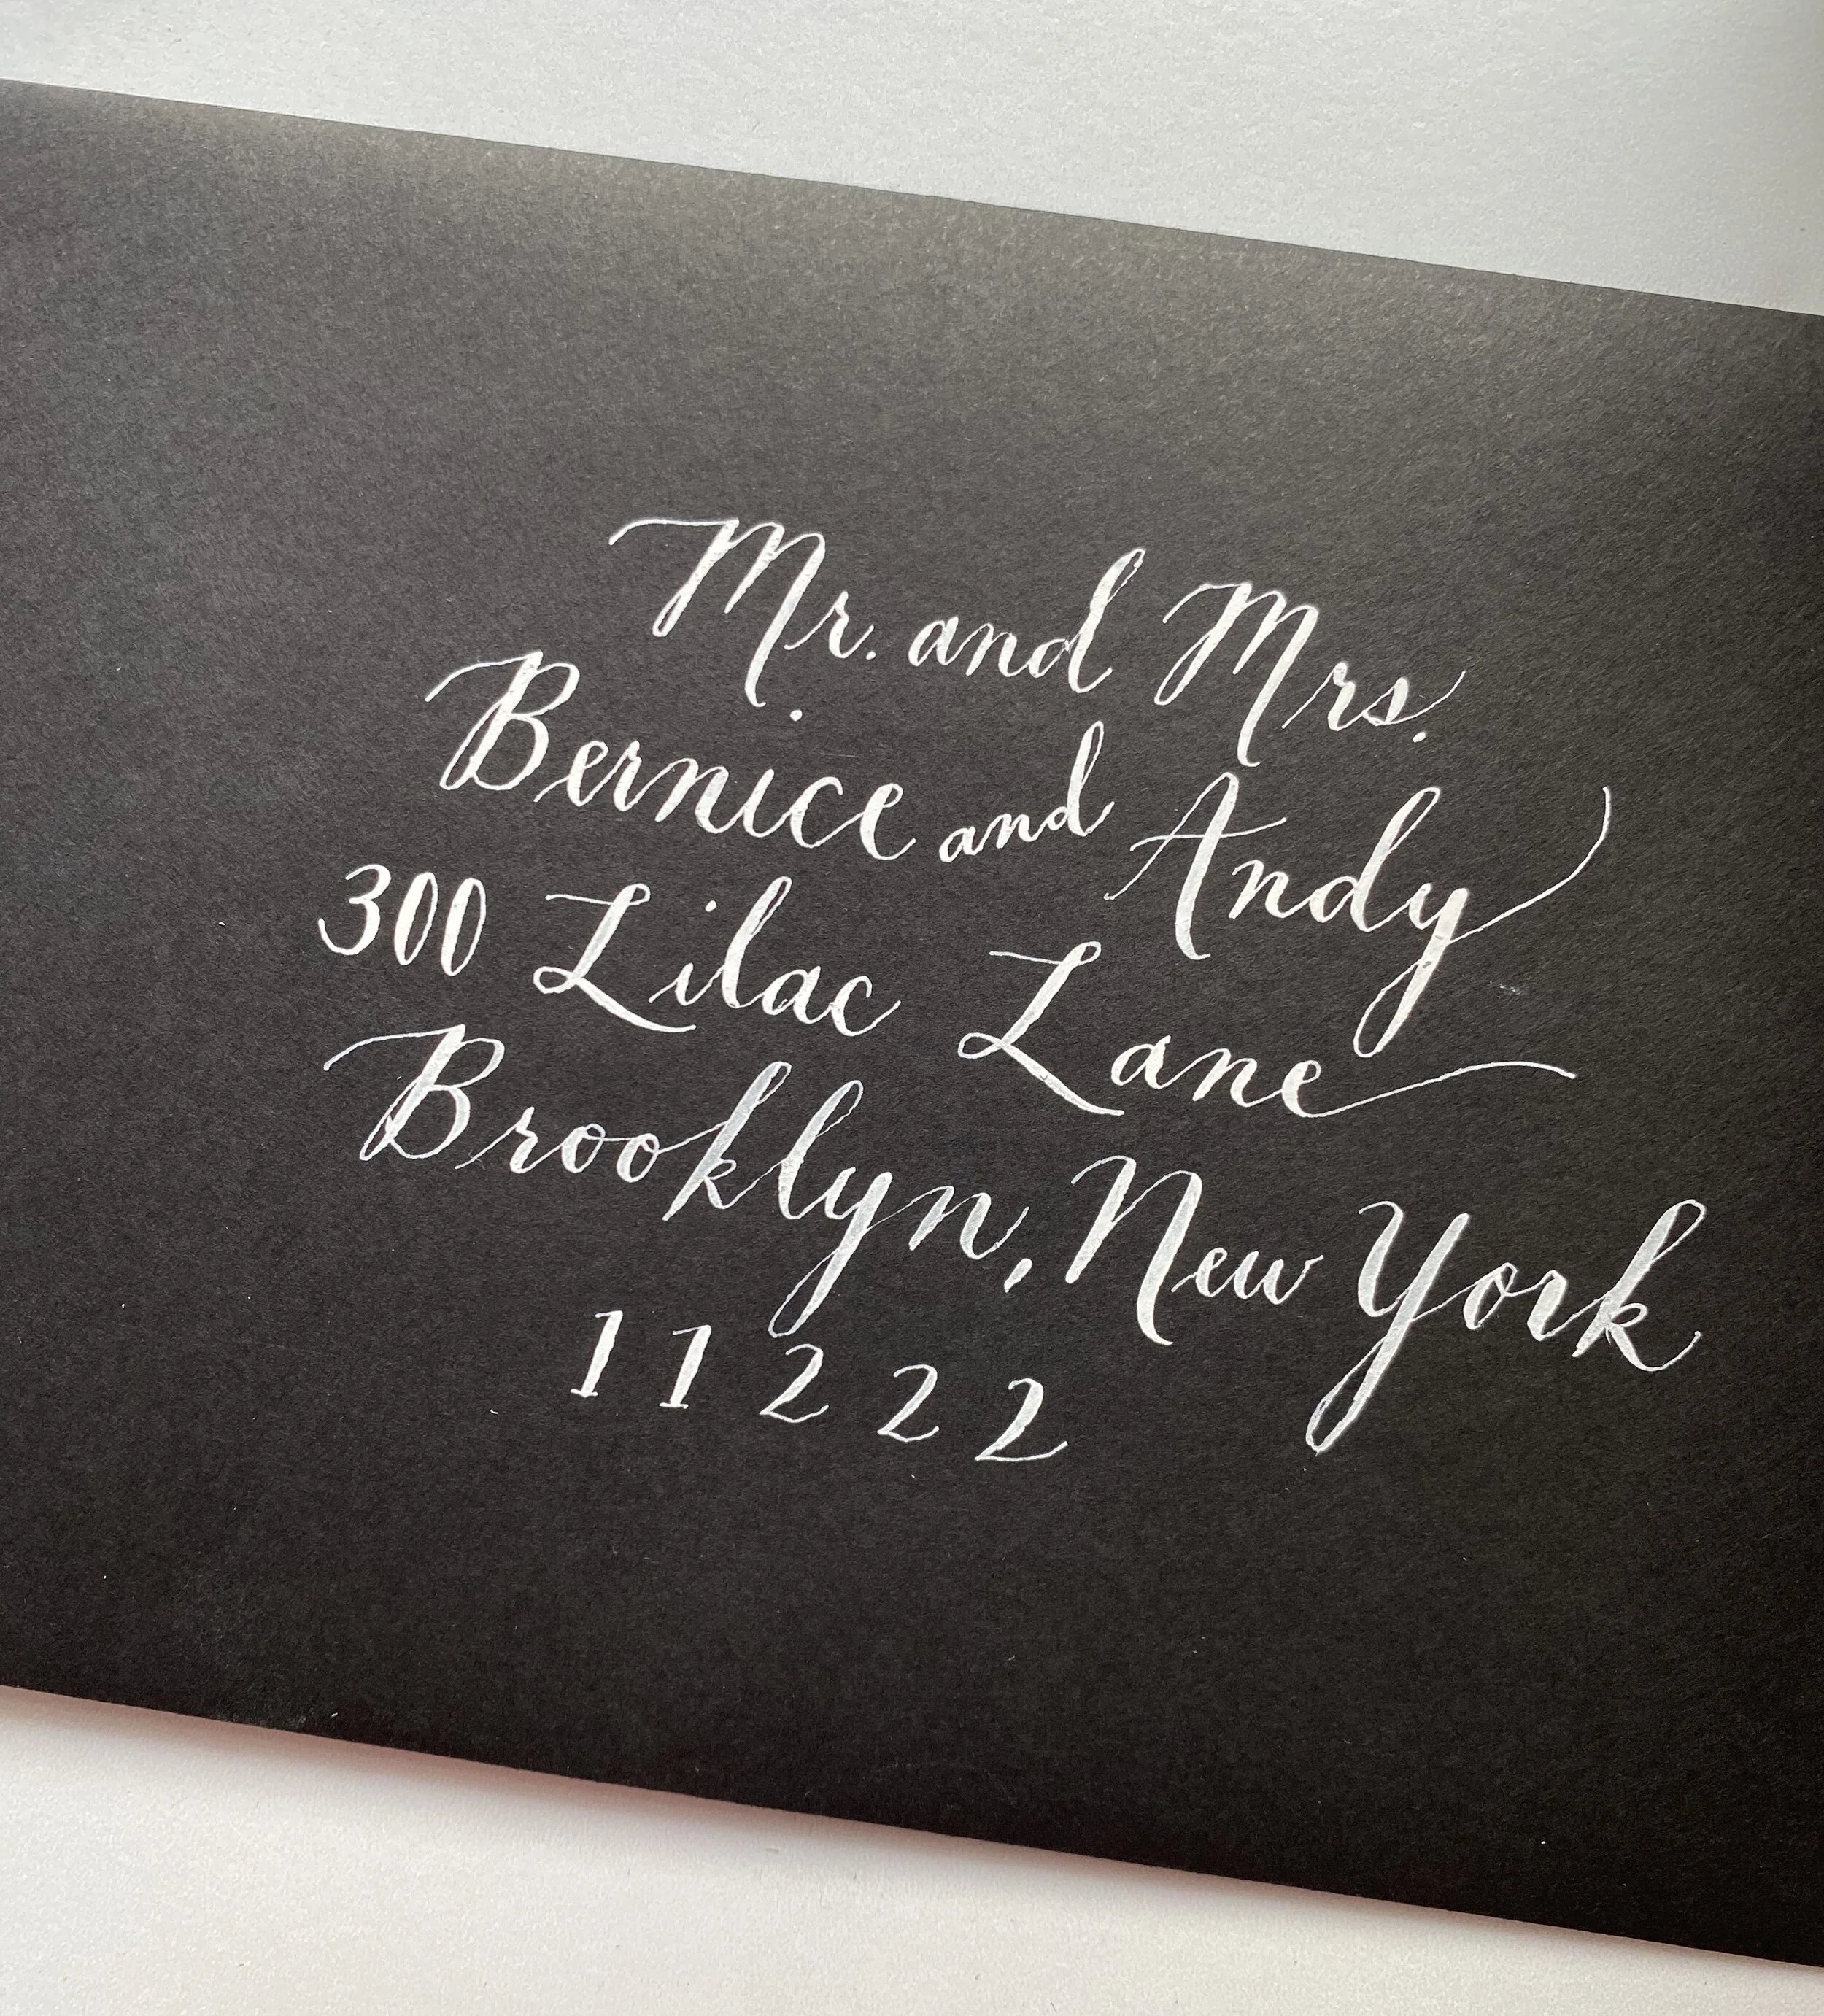 Mr. and Mrs.
Bernice and Andy
300 Lilac Lane
Brooklyn, New York
11222